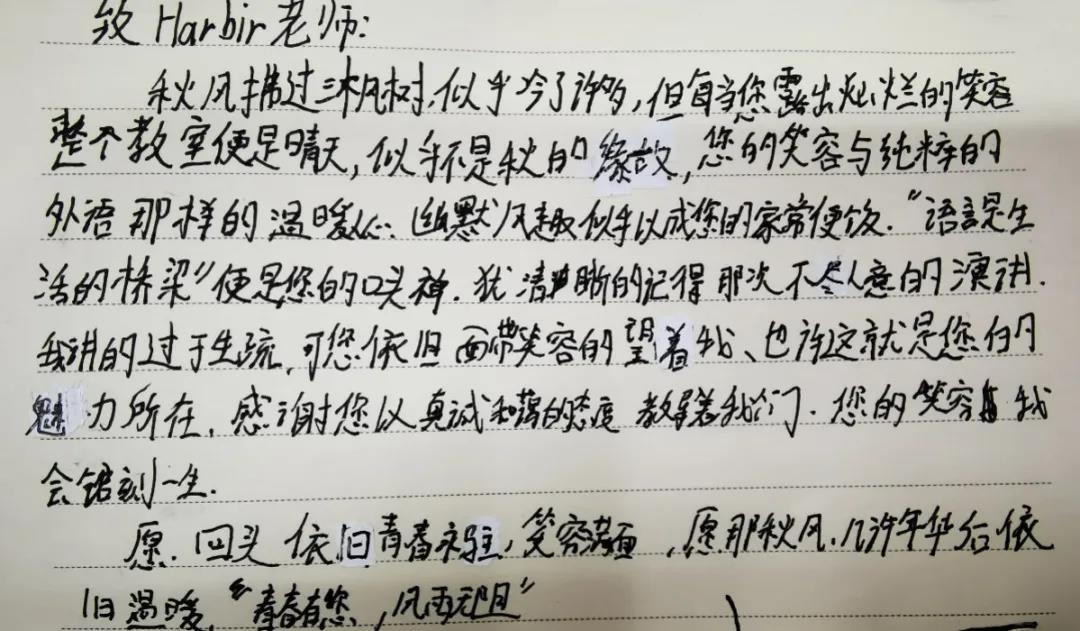 致Harbir老师:
秋风拂过三枫树,似乎冷了许多,但每当您露出灿烂的笑容
整个教室便是晴天,似乎不是秋的缘故,您的笑容与纯粹的
外语那样的温暖人心、幽默风趣似乎以成您的家常便饭.“语言是生
活的桥梁”便是您的口头禅.犹清晰的记得那次不尽人意的演讲.
我讲的过于生疏,可您依旧面带笑容的望着我、也许这就是您的
魅力所在,感谢您以真诚和蔼的态度教导着我们.您的笑容我
会铭刻一生.
愿.回头依旧青春永驻,笑容满面,愿那秋风.几许年华后依
旧温暖,“青春有您,风雨无阻”